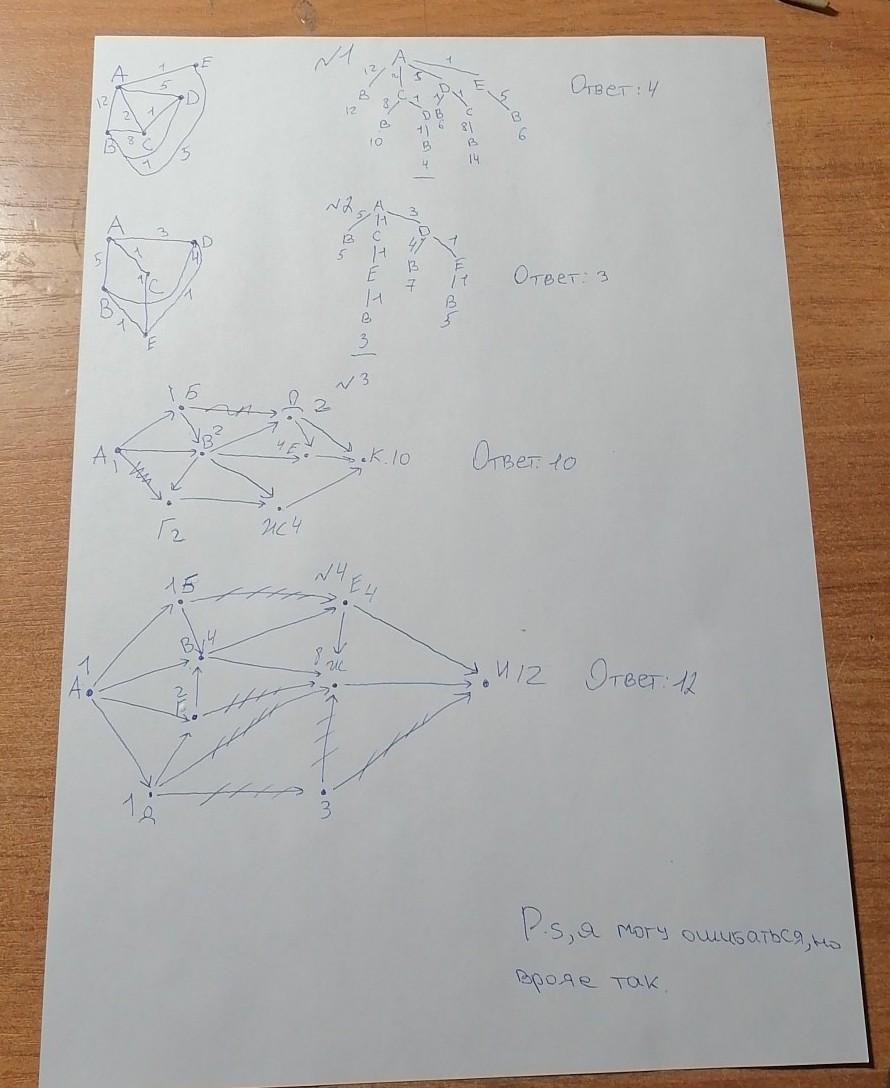 №1
A
1
E
5
D
12
2
1
B
8
C
1
5
A
12
2
5
1
B
C
D
E
12
8
1
1
1
5
B
D
B
C
B
10
1
6
8
6
B
B
4
14
Ответ: 4
№2
A
3
D
5
1
1
C
4
B
1
1
E
A
5
1
3
B
C
D
5
1
4
1
E
B
E
1
7
1
B
B
3
5
Ответ: 3
№3
1 Б
Д 2
A 1
В 2
4 Е
К. 10
Г 2
Ж 4
Ответ: 10
№4
1 Б
Е 4
В 4
8 Ж
А 1
2 Г
И 12
1 Д
З
Ответ: 12
P.s, я могу ошибаться, но
врояе так.